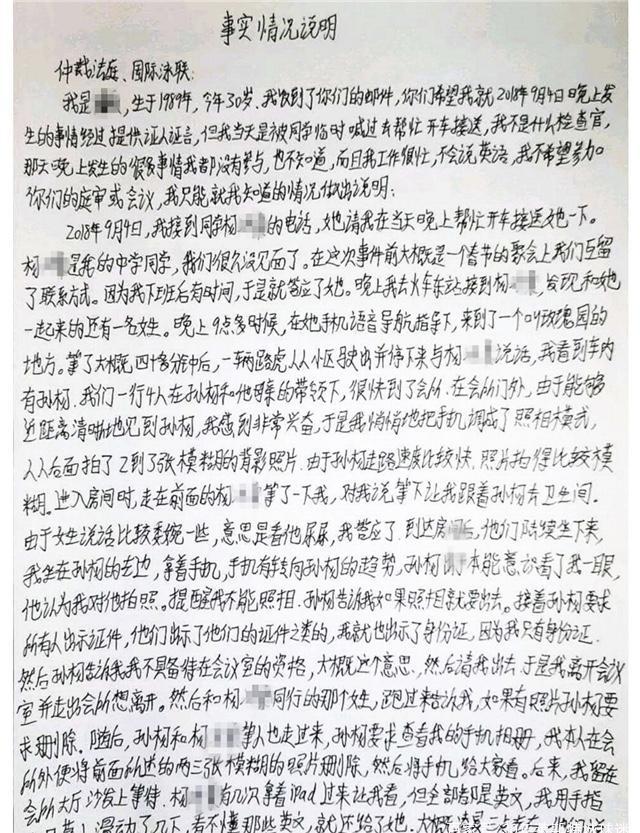 事实情况说明
仲裁法庭、国际泳联：
我是 ，生于1989年，今年30岁。我收到了你们的邮件，你们希望我就2018年9月4日晚上发
生的事情经过提供证人证言，但我当天是被同学临时喊过去帮忙开车接送，我不是什么检查官，
那天晚上发生的很多事情我都没有参与，也不知道，而且我工作很忙，不会说英语，我不希望参加
你们的庭审或会议，我只能就我知道的情况做出说明：
2018年9月4日，我接到同学杨 的电话，她请我在当天晚上帮忙开车接送她一下。
杨 是我的中学同学，我们很久没见面了。在这次事件前大概是一个春节的歌会上我们互留
了联系方式。因为我下班后有时间，于是就答应了她。晚上我去火车东站接到杨 ，发现和她
一起来的还有一名女性。晚上9点多时候，在她手机语音导航指导下，来到了一个叫玫瑰园的
地方。等了大概四十多分钟后，一辆路虎从小区驶出并停下来与杨 说话，我看到车内
有孙杨，我们一行4人在孙杨和他母亲的带领下，很快到了会所。在会所门外，由于能够
近距离清晰地见到孙杨，我感到非常兴奋，于是我悄悄地把手机调成了照相模式，
从后面拍了2到3张模糊的背影照片。由于孙杨走路速度比较快，照片拍得比较模
糊。进入房间时，走在前面的杨 等了一下我，对我说等下让我跟着孙杨去卫生间。
由于女生说话比较委婉一些，意思是看他尿尿，我答应了。到达房间后，他们陆续坐下来，
我坐在孙杨的右边，拿着手机，手机有转向孙杨的趋势，孙杨 本能意识看了我一眼，
他认为我对他拍照。提醒我不能照相。孙杨告诉我如果照相就要出去。接着孙杨要求
所有人出示证件，他们出示了他们的证件之类的，我就也出示了身份证，因为我只有身份证。
然后孙杨告诉我我不具备待在会议室的资格，大概这个意思，然后请我出去，于是我离开会议
室并走出会所想离开。然后和杨 同行的那个女性，跑过来告诉我，如果有照片孙杨要
求删除。随后，孙杨和杨 等人也走过来，孙杨要求查看我的手机相册，我本人在会
所外便将前面所述的两三张模糊的照片删除，然后将手机给大家看。后来，我留在
会所大厅沙发上等待。杨 有几次拿着iPad过来让我看，但全部都是英文，我用手指
滑动了几下，看不懂那些英文，就还给了她。